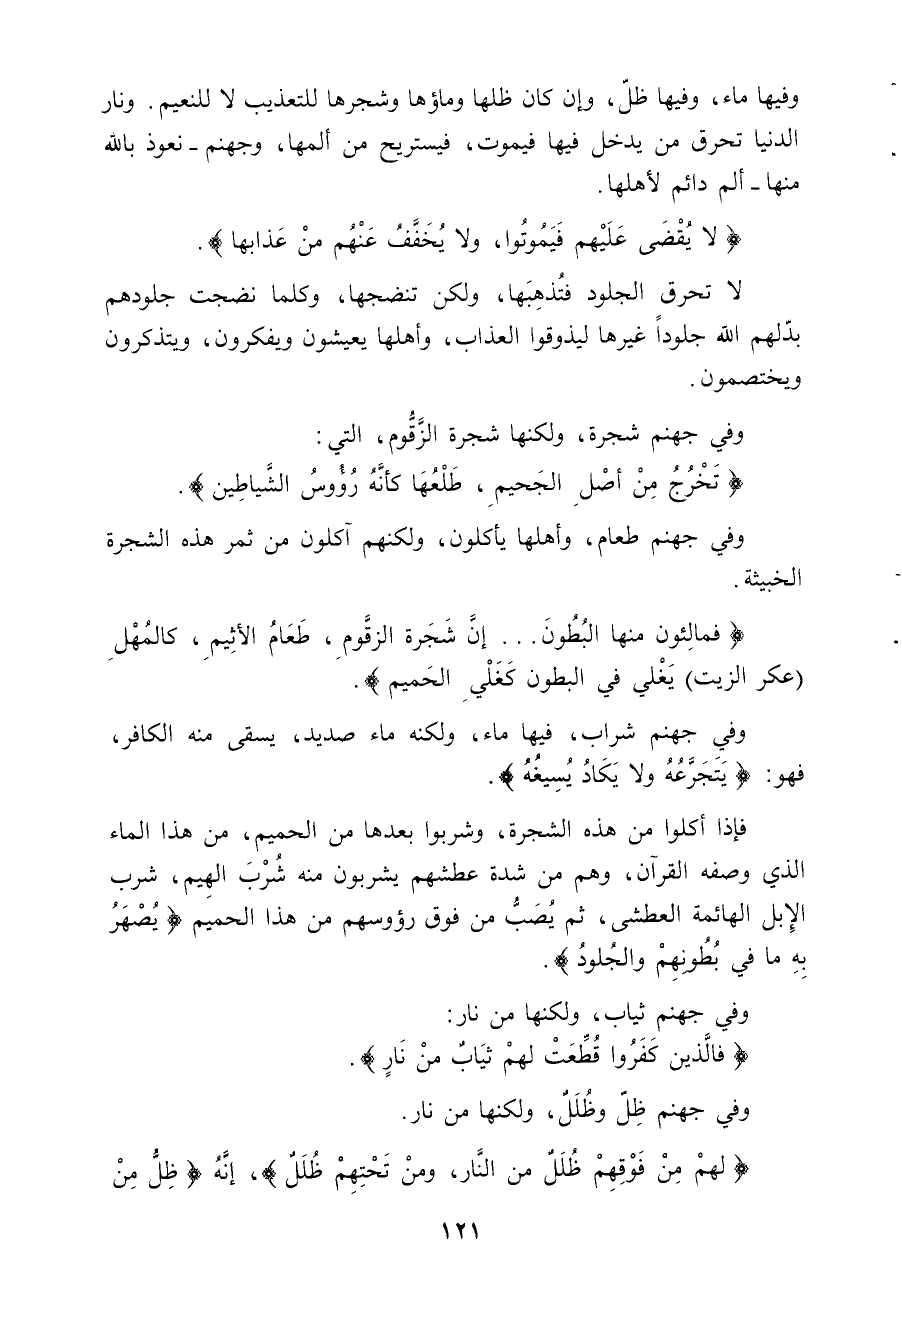 وفيها ماء، وفيها ظلّ، وإن كان ظلها وماؤها وشجرها للتعذيب لا للنعيم. ونار
الدنيا تحرق من يدخل فيها فيموت، فيستريح من ألمها، وجهنم ـ نعوذ بالله
منها ـ ألم دائم لأهلها.
﴿ لا يُقْضَى عَلَيْهم فَيَمُوتُوا، ولا يُخَفَّفُ عَنْهُم منْ عَذابها ﴾.
لا تحرق الجلود فتُذهِبَها، ولكن تنضجها، وكلما نضجت جلودهم
بدّلهم الله جلوداً غيرها ليذوقوا العذاب، وأهلها يعيشون ويفكرون، ويتذكرون
ويختصمون.
وفي جهنم شجرة، ولكنها شجرة الزَّقُّوم، التي:
﴿ تَخْرُجُ مِنْ أصْلِ الجَحيمِ، طَلْعُهَا كأنَّهُ رُؤْوسُ الشَّياطِين ﴾.
وفي جهنم طعام، وأهلها يأكلون، ولكنهم آكلون من ثمر هذه الشجرة
الخبيثة.
﴿ فمالِئون منها البُطُونَ... إنَّ شَجَرة الزقُّومِ، طَعَامُ الأثِيمِ، كالمُهْلِ
(عكر الزيت) يَغْلي في البطون كَغَلْيِ الحَميم ﴾.
وفي جهنم شراب، فيها ماء، ولكنه ماء صديد، يسقى منه الكافر،
فهو: ﴿ يَتَجَرَّعُهُ ولا يَكَادُ يُسِيغُهُ ﴾.
فإذا أكلوا من هذه الشجرة، وشربوا بعدها من الحميم، من هذا الماء
الذي وصفه القرآن، وهم من شدة عطشهم يشربون منه شُرْبَ الهيم، شرب
الإبل الهائمة العطشى، ثم يُصَبُّ من فوق رؤوسهم من هذا الحميم ﴿ يُصْهَرُ
بِهِ ما في بُطُونِهِمْ والجُلودُ ﴾.
وفي جهنم ثياب، ولكنها من نار:
﴿ فالَّذين كَفَرُوا قُطِّعَتْ لهمْ ثيَابٌ منْ نَارٍ ﴾.
وفي جهنم ظِلّ وظُلَلٌ، ولكنها من نار.
﴿ لهمْ مِنْ فَوْقِهِمْ ظُلَلٌ من النَّار، ومنْ تَحْتِهِمْ ظُلَلٌ ﴾، إنَّهُ ﴿ ظِلُّ مِنْ
١٢١